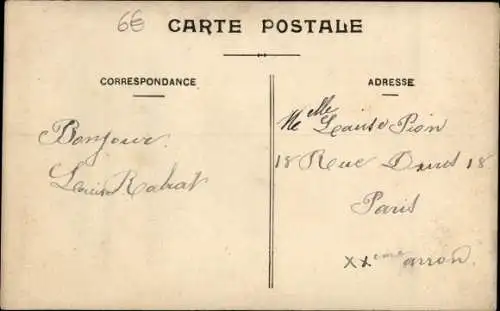 6€
CARTE POSTALE
CORRESPONDANCE
Bonjour
Louis Rabat
ADRESSE
Melle Louise Pion
18 Rue 18
Paris
XXeme arron.